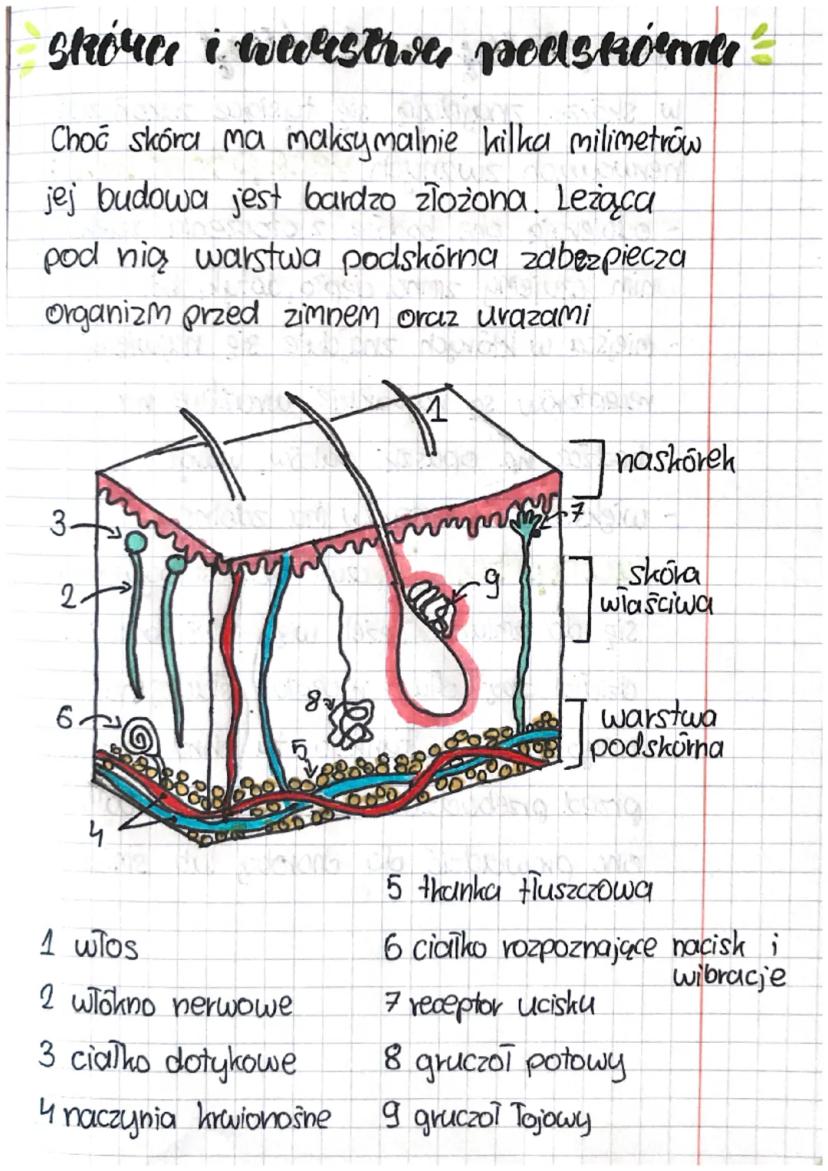 skóra i warstwa podskórna
Choć skóra ma maksymalnie kilka milimetrów
jej budowa jest bardzo złożona. Leżąca
pod nią warstwa podskórna zabezpiecza
organizm przed zimnem oraz urazami
1
naskórek
3
7
2
9
skóra
właściwa
6
8
5
warstwa
podskórna
4
5 tkanka tłuszczowa
1 włos
6 ciałko rozpoznające nacisk i
wibracje
2 włókno nerwowe
7 receptor ucisku
3 ciałko dotykowe
8 gruczoł potowy
4 naczynia krwionośne
9 gruczoł łojowy